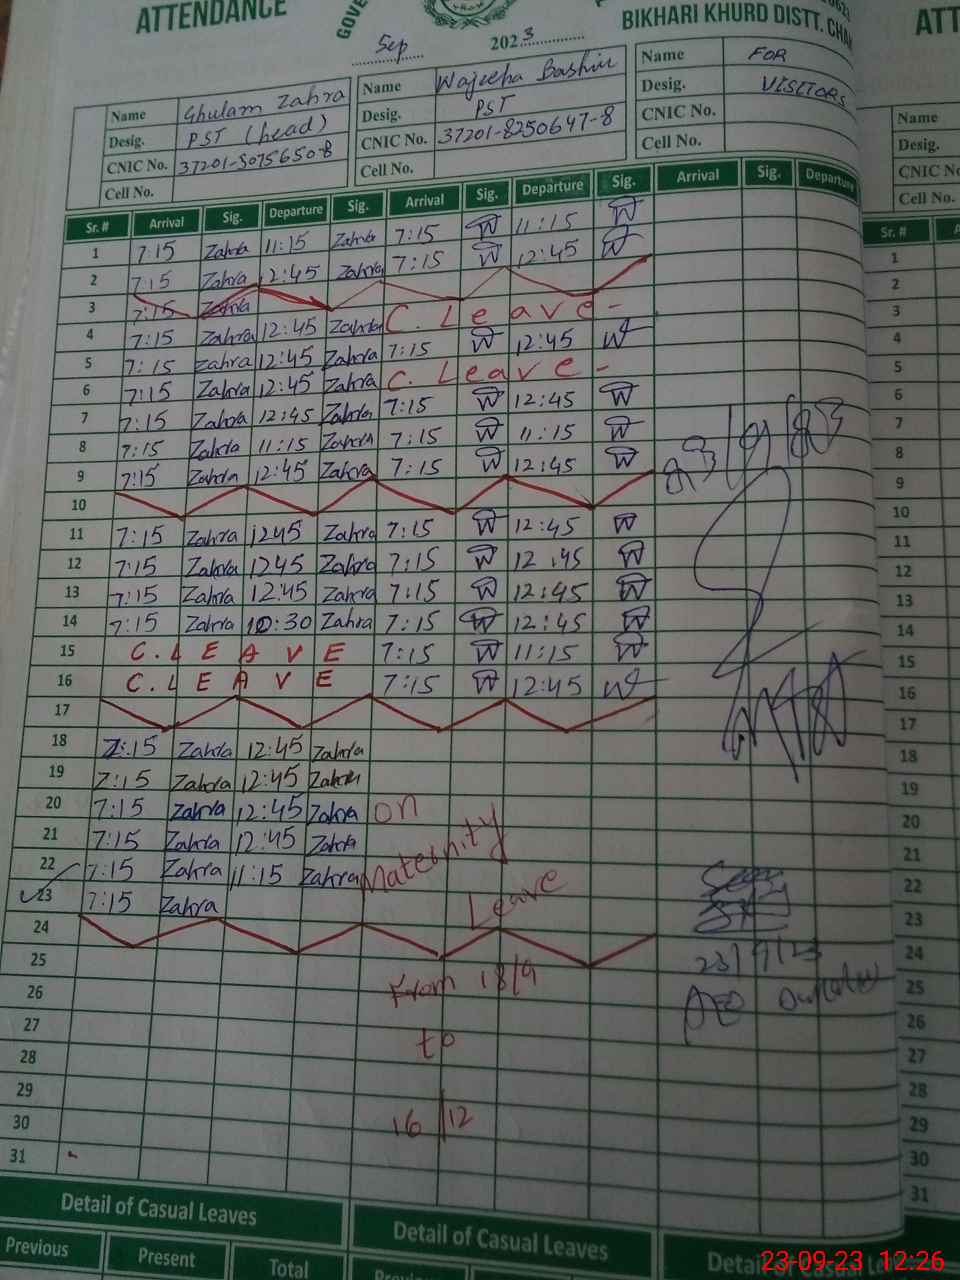 ATTENDANCE
Sep 2023
BIKHARI KHURD DISTT. CHA
ATT
Name Ghulam Zahra Name Wajeeha Bashir Name FOR
Desig. PST (head) Desig. PST Desig. VISITORS
CNIC No. 37201-5075650-8 CNIC No. 37201-8250647-8 CNIC No.
Cell No. Cell No. Cell No.
Name
Desig.
CNIC No
Cell No.
Sr. # Arrival Sig. Departure Sig. Arrival Sig. Departure Sig. Arrival Sig. Departure Sr. #
1 7:15 Zahra 11:15 Zahra 7:15 W 11:15 W 1
2 7:15 Zahra 12:45 Zahra 7:15 W 12:45 W 2
3 7:15 Zahra 3
4 7:15 Zahra 12:45 Zahra C. Leave - 4
5 7:15 Zahra 12:45 Zahra 7:15 W 12:45 W 5
6 7:15 Zahra 12:45 Zahra C. Leave - 6
7 7:15 Zahra 12:45 Zahra 7:15 W 12:45 W 7
8 7:15 Zahra 11:15 Zahra 7:15 W 11:15 W 8
9 7:15 Zahra 12:45 Zahra 7:15 W 12:45 W 9
10 10
11 7:15 Zahra 1245 Zahra 7:15 W 12:45 W 11
12 7:15 Zahra 1245 Zahra 7:15 W 12:45 W 12
13 7:15 Zahra 12:45 Zahra 7:15 W 12:45 W 13
14 7:15 Zahra 10:30 Zahra 7:15 W 12:45 W 14
15 C. LEAVE 7:15 W 11:15 W 15
16 C. LEAVE 7:15 W 12:45 W 16
17 17
18 7:15 Zahra 12:45 Zahra 18
19 7:15 Zahra 12:45 Zahra 19
20 7:15 Zahra 12:45 Zahra on 20
21 7:15 Zahra 12:45 Zahra 21
22 7:15 Zahra 11:15 Zahra Maternity 22
23 7:15 Zahra Leave 23
24 23/9/23 24
25 From 18/9 AEO 25
26 26
27 to 27
28 28
29 29
30 16/12 30
31 31
Detail of Casual Leaves Detail of Casual Leaves
Previous Present Total
23-09-23 12:26